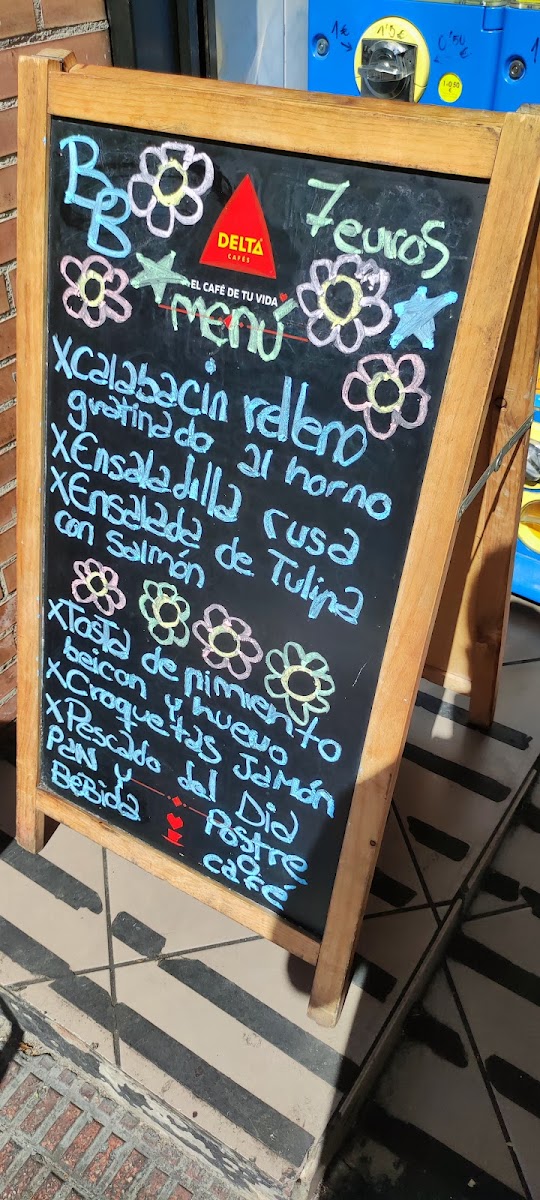 1€ 1'0€ 0'50€
1-0.50
€
BB
7 euros
DELTA
CAFÉS
EL CAFÉ DE TU VIDA
menú
XCalabacin relleno
gratinado al horno
XEnsaladilla rusa
XEnsalada de Tulipa
con salmón
XTosta de pimiento
beicon y huevo
XCroquetas Jamón
XPescado del Dia
PAN Y
BeBida
Postre
o
café